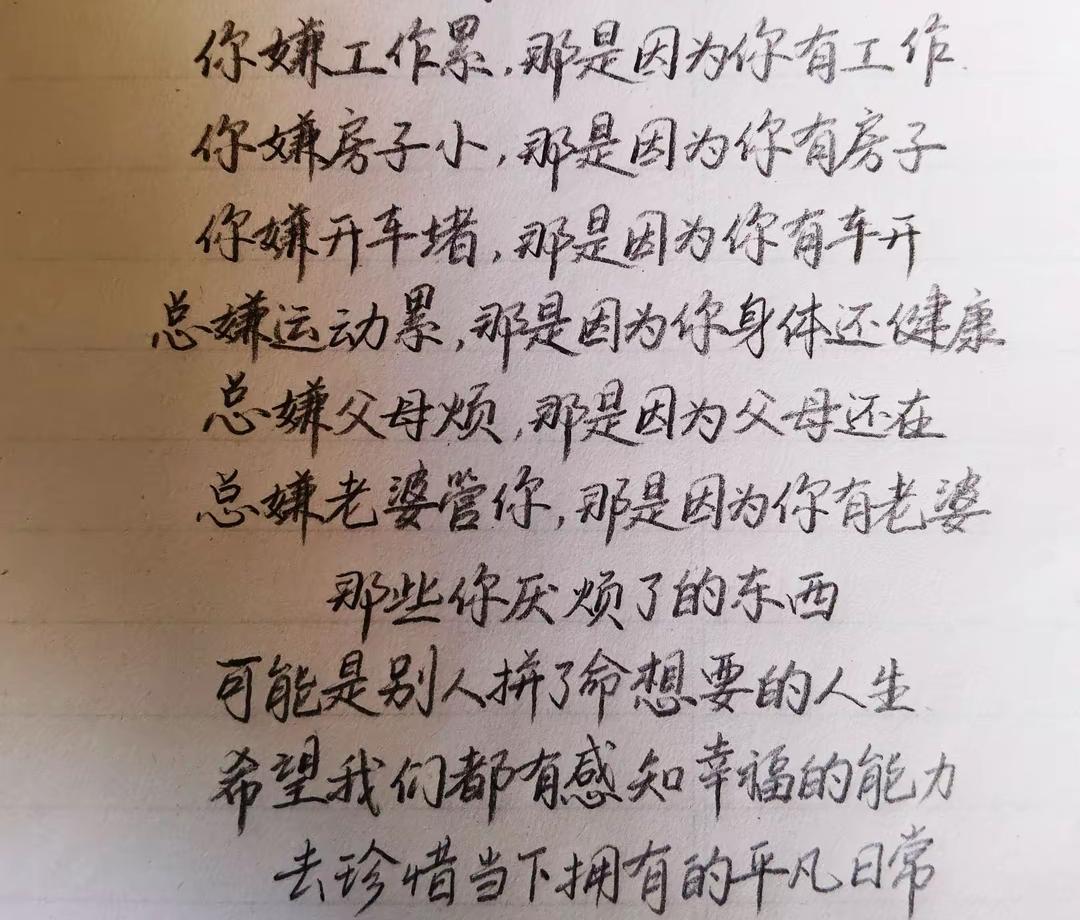 你嫌工作累,那是因为你有工作.
你嫌房子小,那是因为你有房子
你嫌开车堵,那是因为你有车开
总嫌运动累,那是因为你身体还健康
总嫌父母烦,那是因为父母还在
总嫌老婆管你,那是因为你有老婆
那些你厌烦了的东西
可能是别人拼了命想要的人生.
希望我们都有感知幸福的能力
去珍惜当下拥有的平凡日常